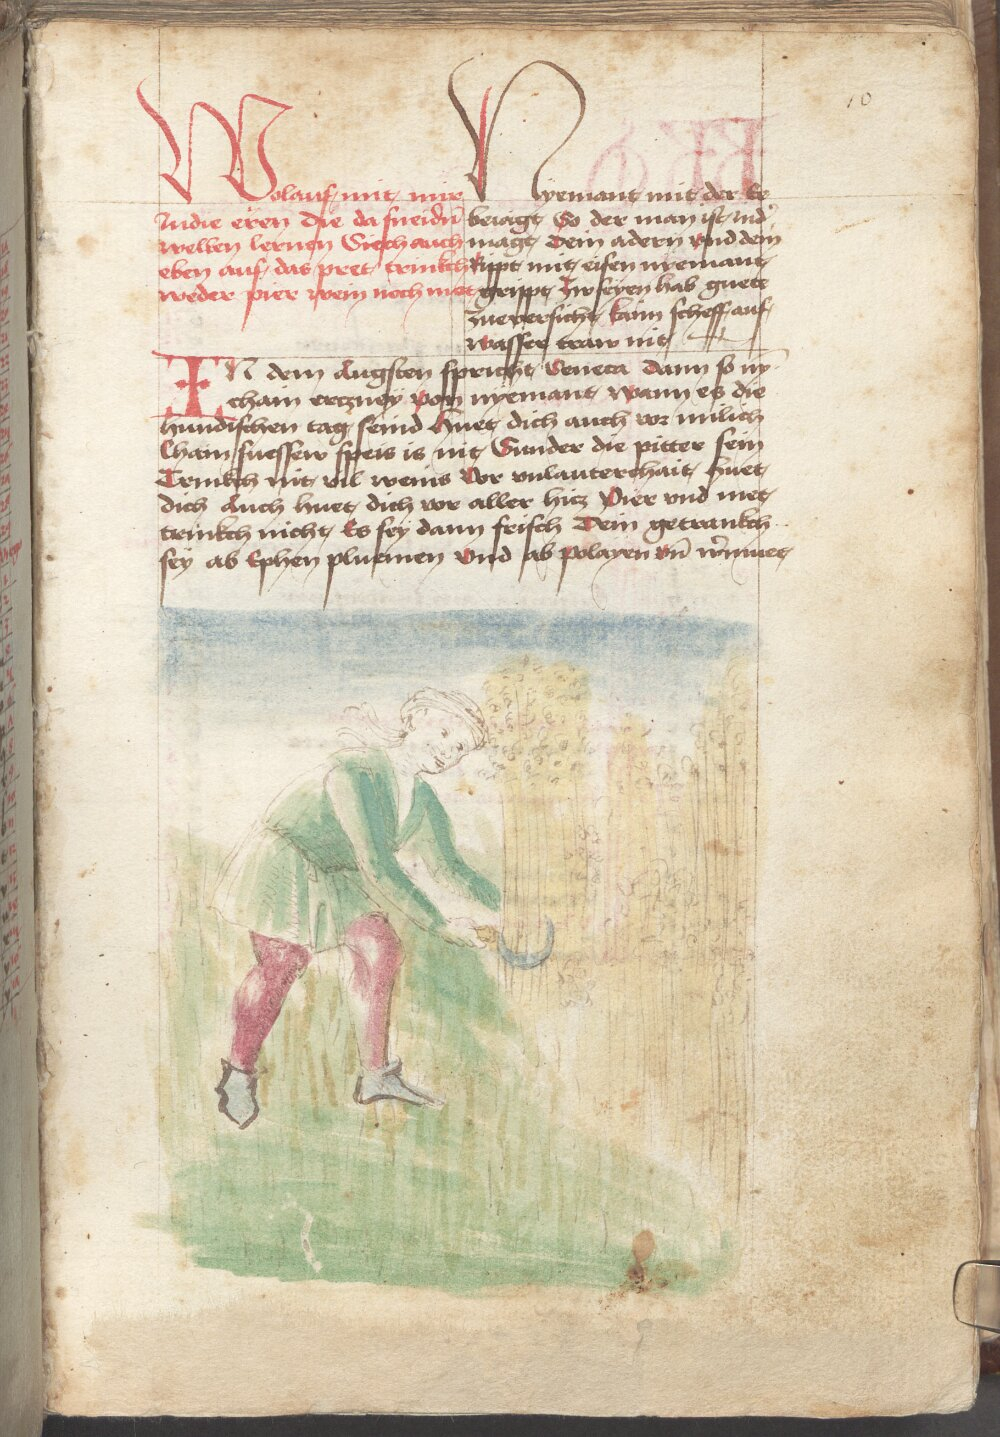 10
Wolauf mit mir
Jndie eren Die da sneidn̄
wellen lernen Siech auch
eben auf das pret trinkch
weder pier wein noch met
Nyemant mit der Er
beiagt So der man ist
magt Dein adern Vnd dein
Ripp mit eisen nyemant
gripp Zw seyen hab guete
Zueversicht kain scheff auf
wasser traw nit
IN dem Augsten spricht Seneca Dann so nym
chain ertzney von nyemant Wann es die
hundischen tag seind Huet dich auch vor milich
Chain suessew speis is nit Sunder die pitter sein
Trinkch nit vil weins Vor vnlauterchait huet
dich Auch huet dich vor aller hicz Pier vnd met
trinkch nicht Es sey dann frisch Dein getrankch
sey ab Ephen pluemen Vnd ab polayen Vn̄